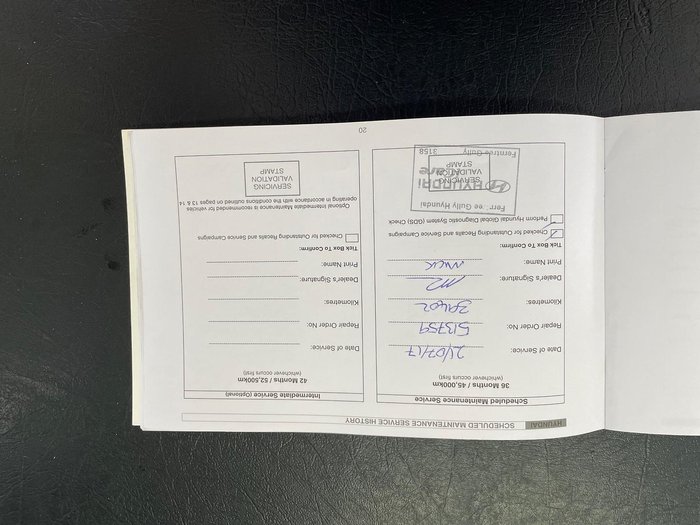 HYUNDAI SCHEDULED MAINTENANCE SERVICE HISTORY
Scheduled Maintenance Service
36 Months / 45,000km
(whichever occurs first)
Date of Service: 21/07/17
Repair Order No: 513759
Kilometres: 39602
Dealer's Signature:
Print Name: NICK
Tick Box To Confirm:
Checked for Outstanding Recalls and Service Campaigns
Perform Hyundai Global Diagnostic System (GDS) Check
SERVICING
VALIDATION
STAMP
Gully Hyundai
HYUNDAI
Ferntree Gully 3158
Intermediate Service (Optional)
42 Months / 52,500km
(whichever occurs first)
Date of Service:
Repair Order No:
Kilometres:
Dealer's Signature:
Print Name:
Tick Box To Confirm:
Checked for Outstanding Recalls and Service Campaigns
Optional Intermediate Maintenance is recommended for vehicles
operating in accordance with the conditions outlined on pages 13 & 14
SERVICING
VALIDATION
STAMP
20